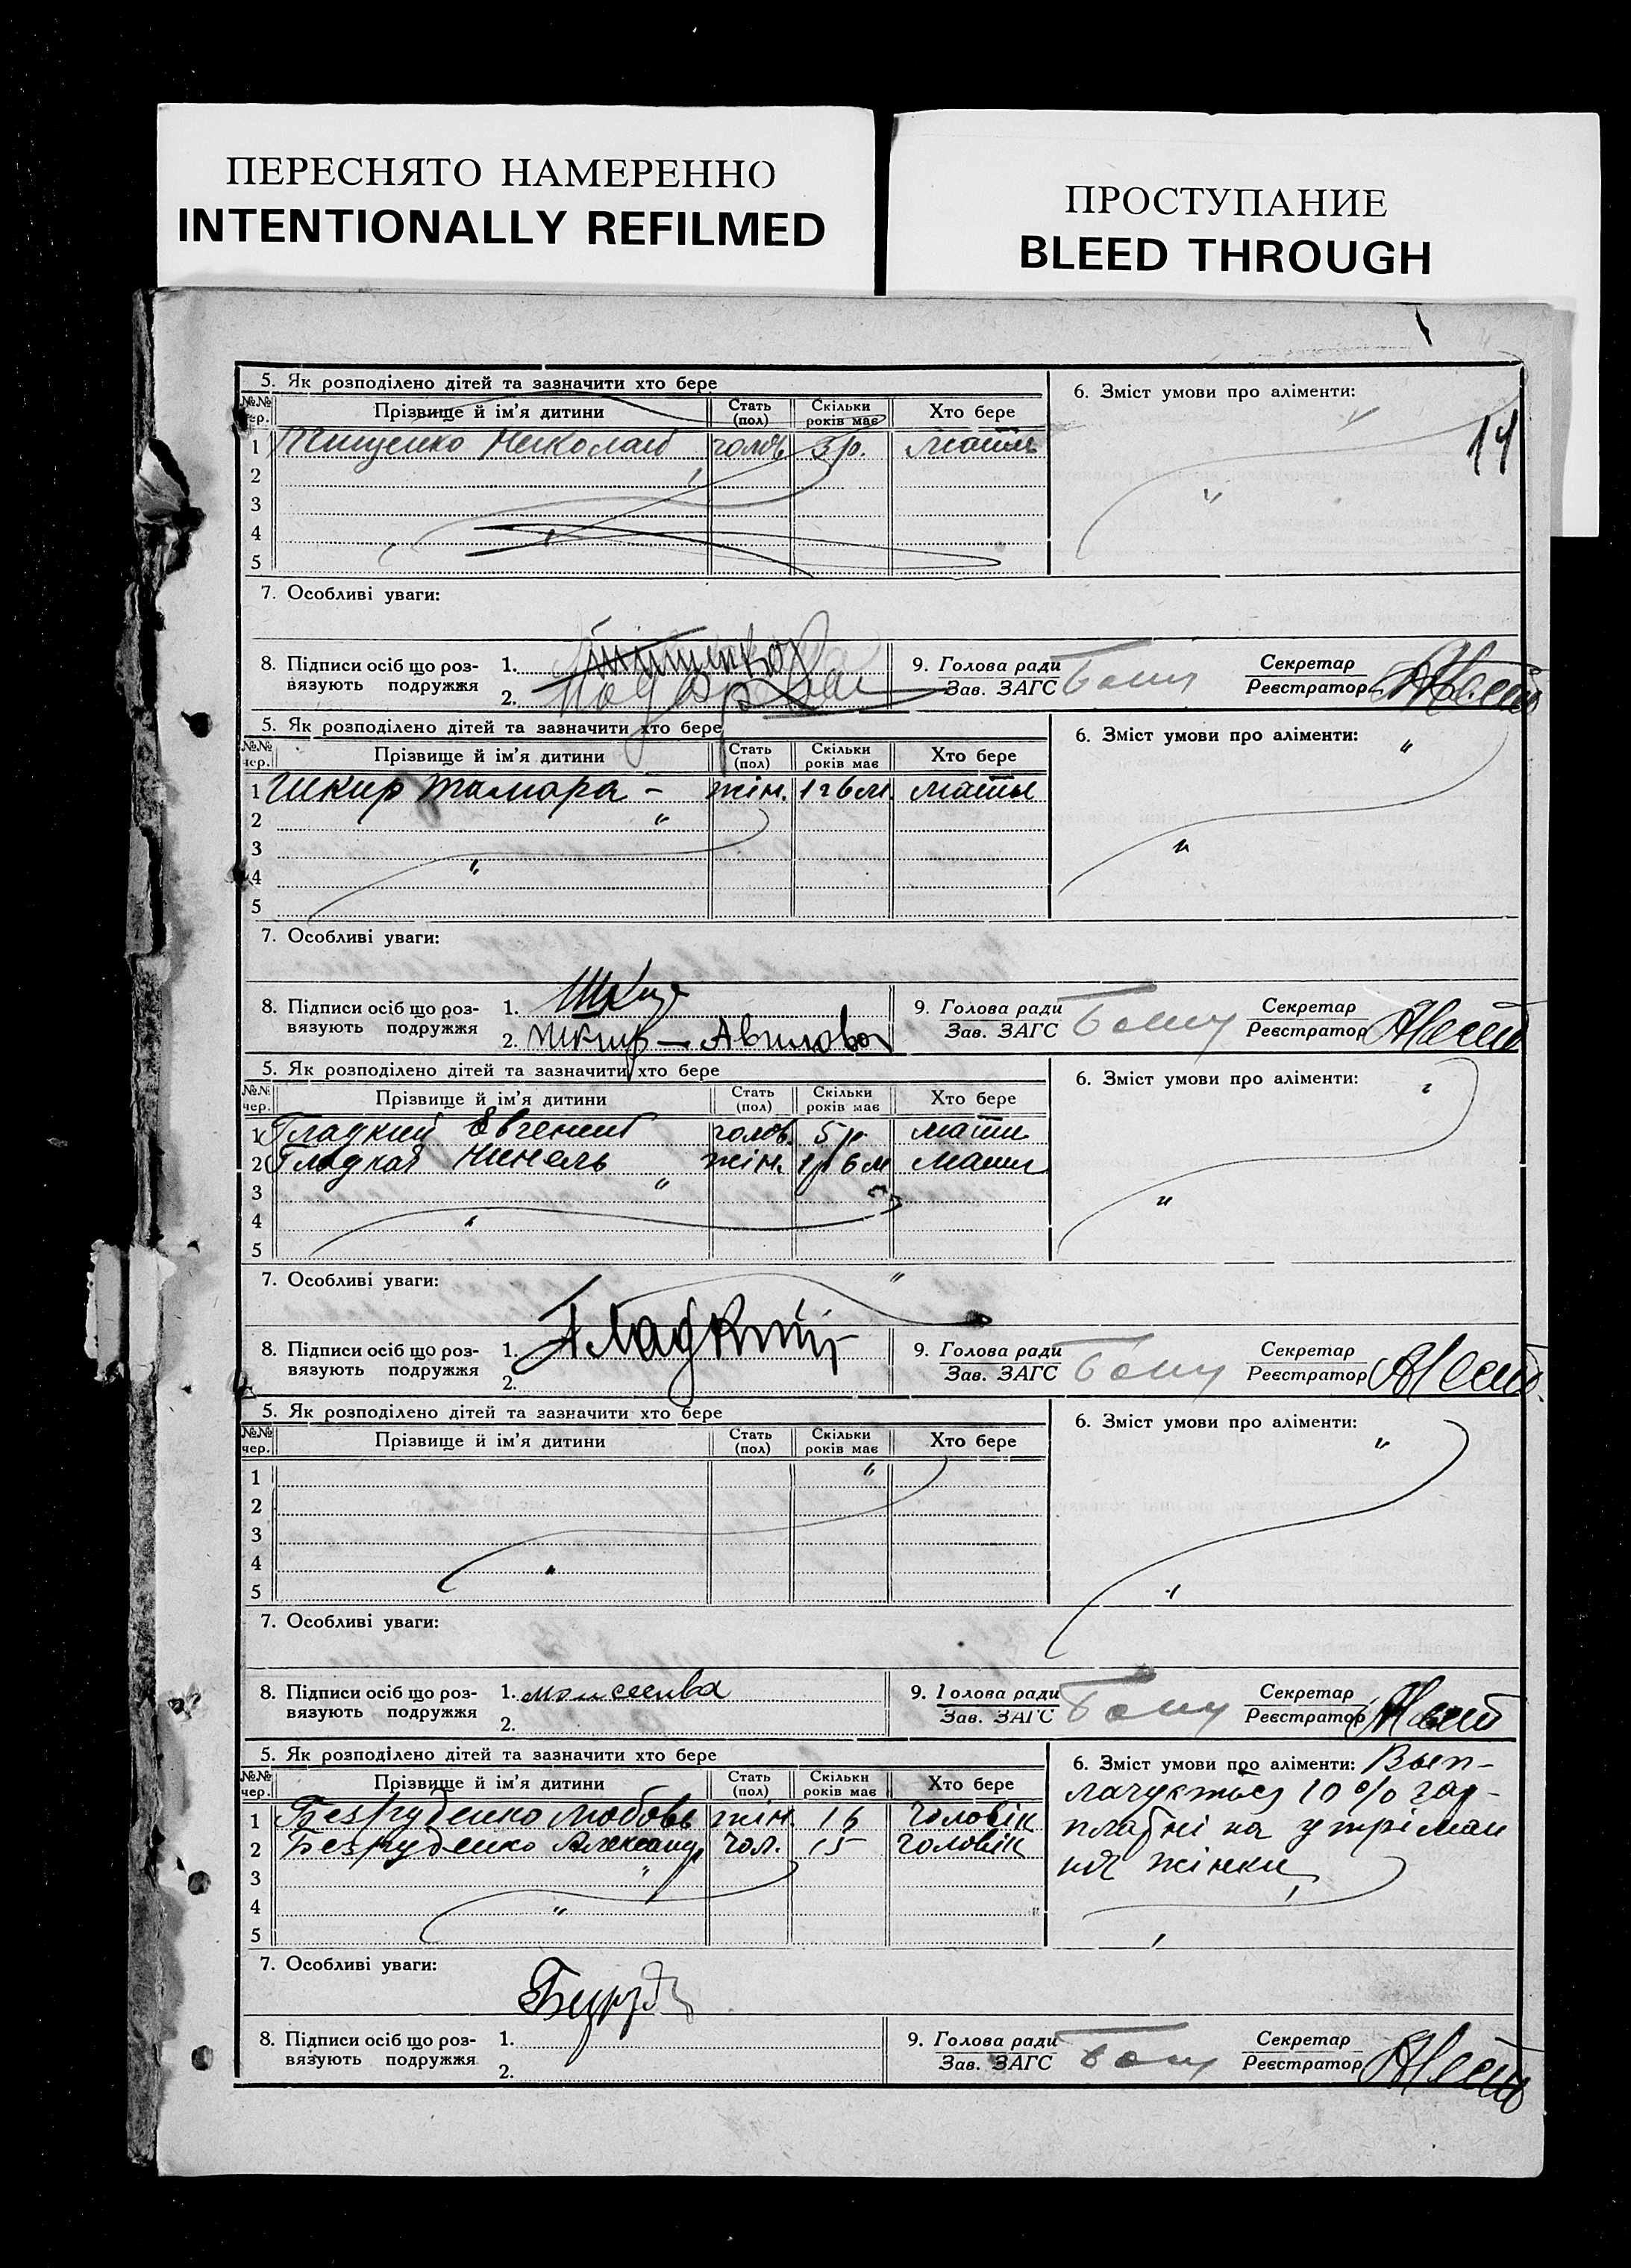 ПЕРЕСНЯТО НАМЕРЕННО
INTENTIONALLY REFILMED
ПРОСТУПАНИЕ
BLEED THROUGH
14
5. Як розподілено дітей та зазначити хто бере
6. Зміст умови про аліменти:
№№ чер. Прізвище й ім'я дитини Стать (пол) Скільки років має Хто бере
1 Тищенко Николай чолов. 3 р. мать
2
3
4
5
7. Особливі уваги:
8. Підписи осіб що роз-
вязують подружжя
1.
2.
9. Голова ради
Зав. ЗАГС
Секретар
Реєстратор
5. Як розподілено дітей та зазначити хто бере
6. Зміст умови про аліменти:
№№ чер. Прізвище й ім'я дитини Стать (пол) Скільки років має Хто бере
1 Шкир Тамара - жін. 1 г 6 м. мати
2
3
4
5
7. Особливі уваги:
8. Підписи осіб що роз-
вязують подружжя
1.
2. Шкир — Авилова
9. Голова ради
Зав. ЗАГС
Секретар
Реєстратор
5. Як розподілено дітей та зазначити хто бере
6. Зміст умови про аліменти:
№№ чер. Прізвище й ім'я дитини Стать (пол) Скільки років має Хто бере
1 Гладкий Евгений чолов. 5 р. мати
2 Гладкая Нинель жін. 1 р 6 м мати
3
4
5
7. Особливі уваги:
8. Підписи осіб що роз-
вязують подружжя
1. Гладкий
2.
9. Голова ради
Зав. ЗАГС
Секретар
Реєстратор
5. Як розподілено дітей та зазначити хто бере
6. Зміст умови про аліменти:
№№ чер. Прізвище й ім'я дитини Стать (пол) Скільки років має Хто бере
1
2
3
4
5
7. Особливі уваги:
8. Підписи осіб що роз-
вязують подружжя
1. Моисеева
2.
9. Голова ради
Зав. ЗАГС
Секретар
Реєстратор
5. Як розподілено дітей та зазначити хто бере
6. Зміст умови про аліменти: Вып-
лачується 10% зар-
платні на утріман
ня жінки
№№ чер. Прізвище й ім'я дитини Стать (пол) Скільки років має Хто бере
1 Безруденко Любовь жін. 16 чоловік
2 Безруденко Александр чол. 15 чоловік
3
4
5
7. Особливі уваги:
8. Підписи осіб що роз-
вязують подружжя
1.
2.
9. Голова ради
Зав. ЗАГС
Секретар
Реєстратор